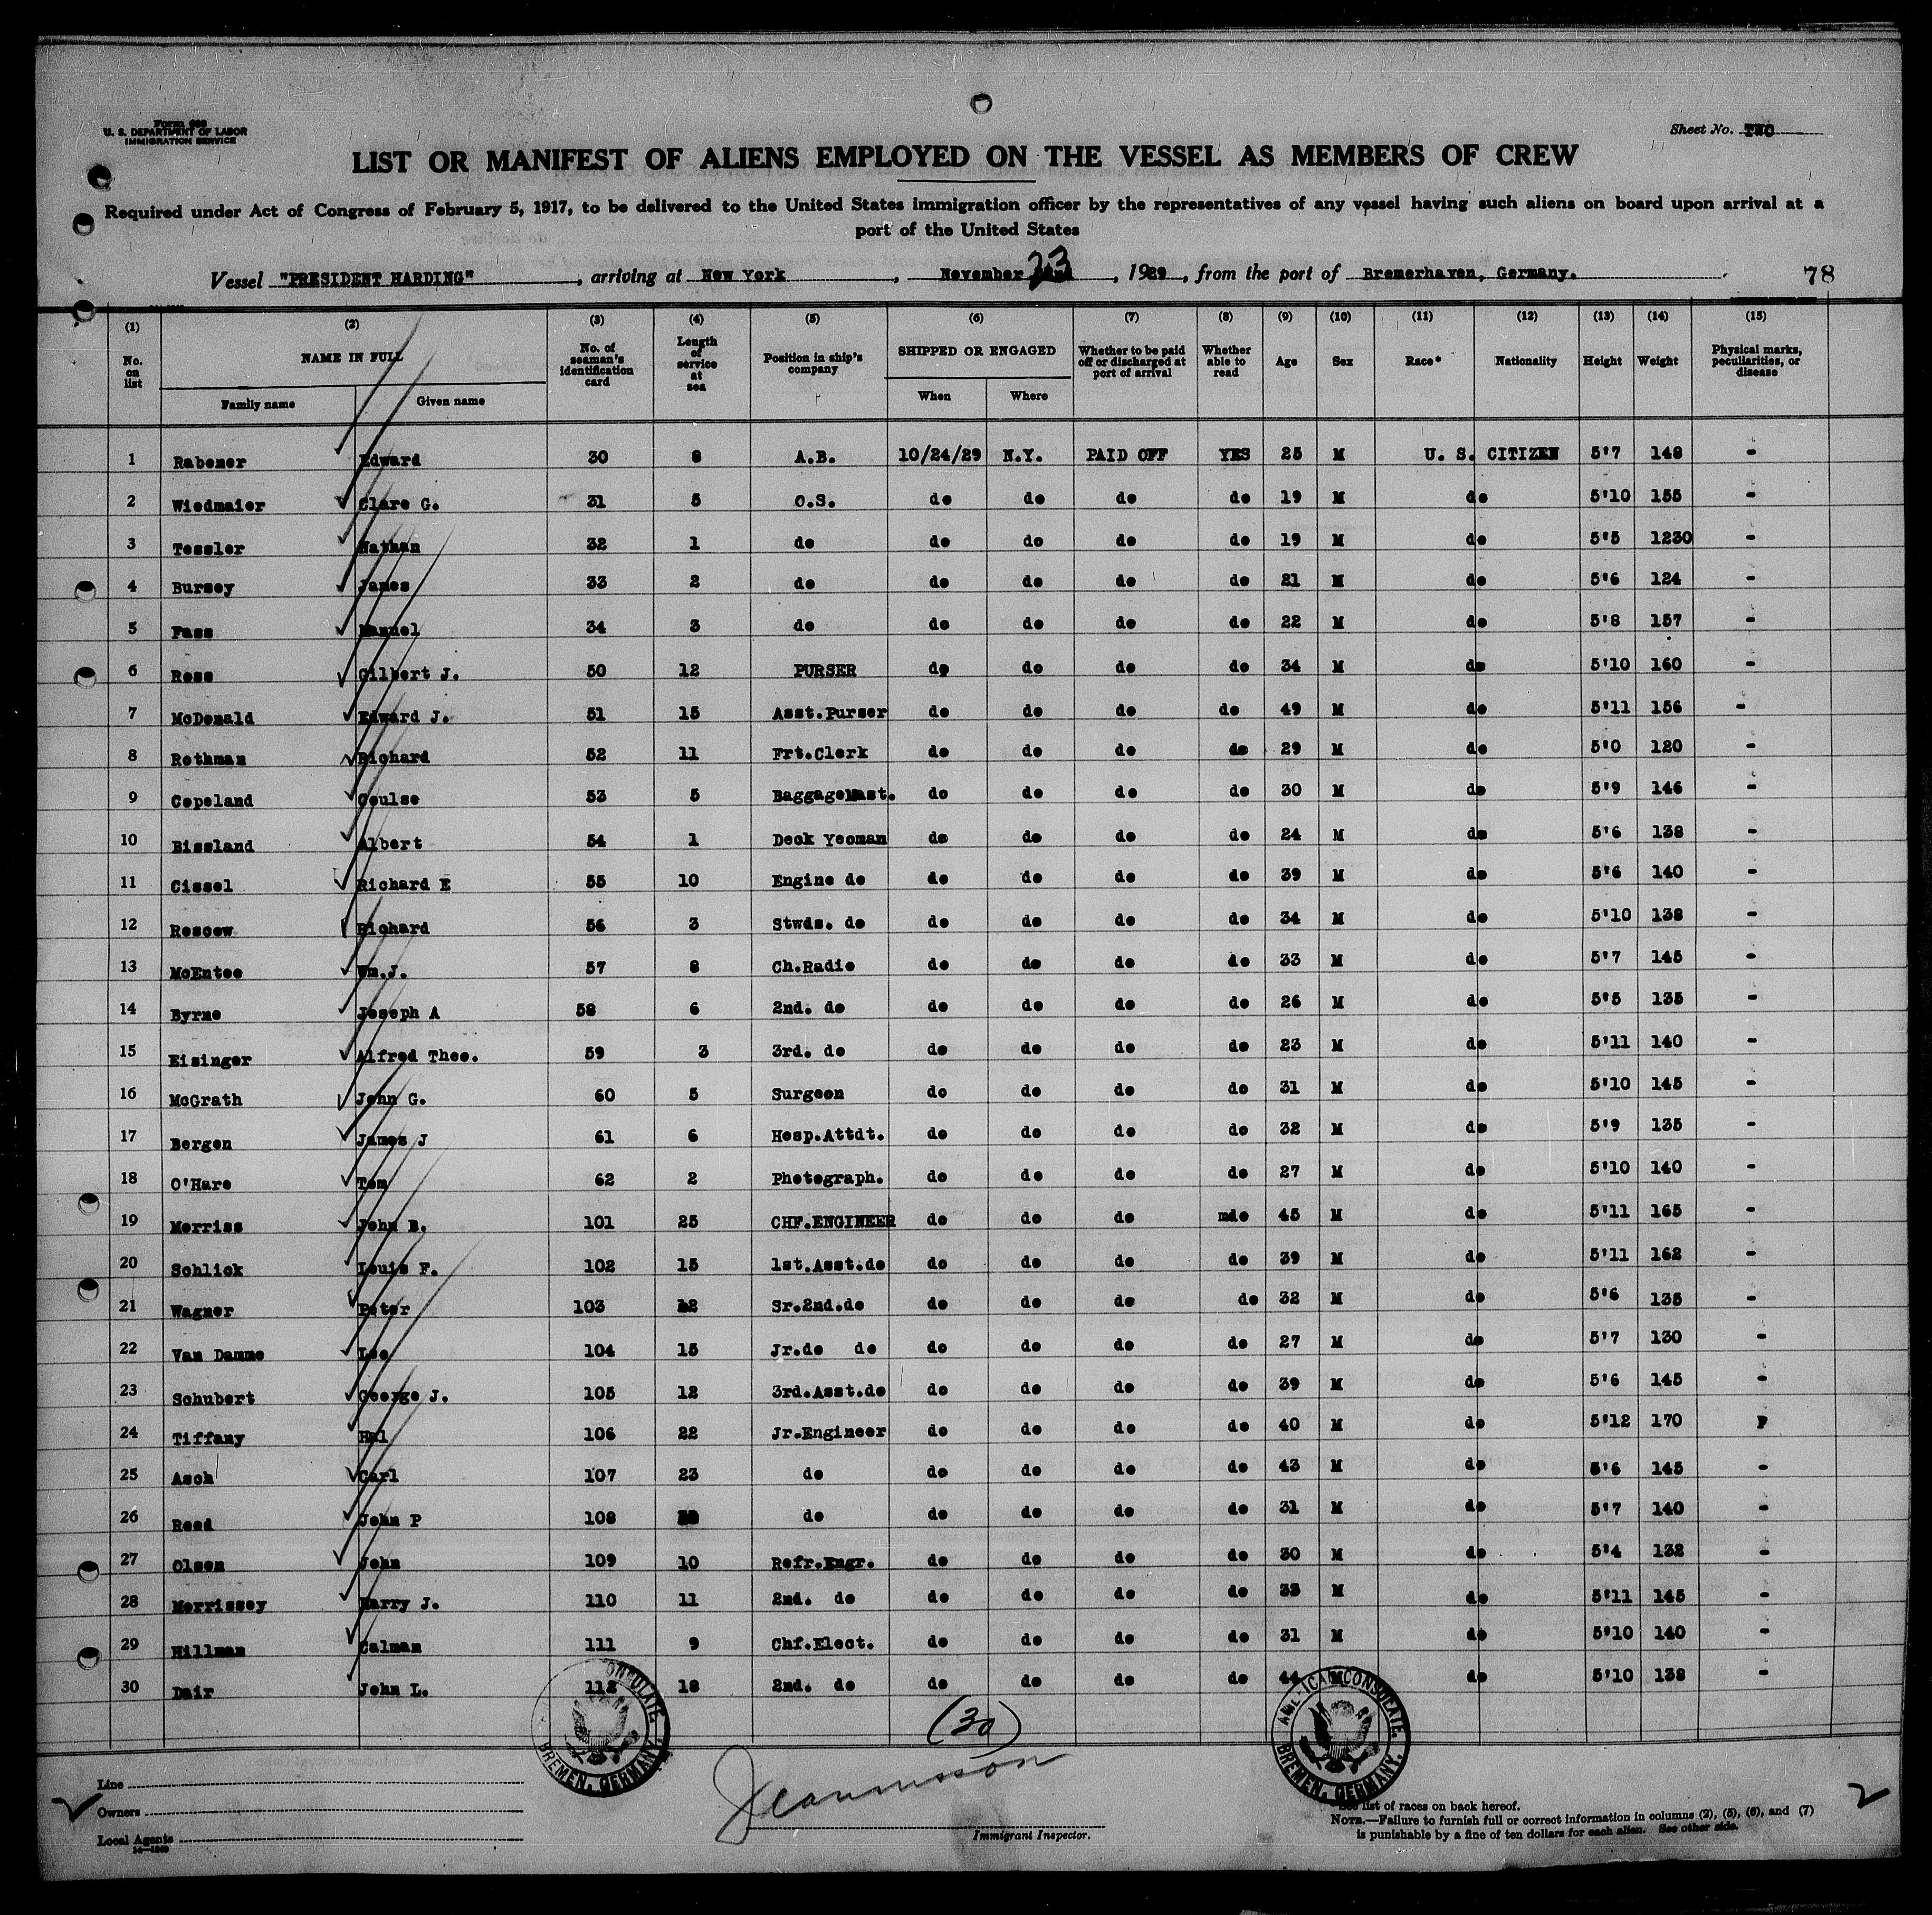 Form 680
U. S. DEPARTMENT OF LABOR
IMMIGRATION SERVICE
Sheet No. TWO
LIST OR MANIFEST OF ALIENS EMPLOYED ON THE VESSEL AS MEMBERS OF CREW
Required under Act of Congress of February 5, 1917, to be delivered to the United States immigration officer by the representatives of any vessel having such aliens on board upon arrival at a
port of the United States
Vessel "PRESIDENT HARDING", arriving at New York, November 23, 1929, from the port of Bremerhaven, Germany.
78
(1) (2) (3) (4) (5) (6) (7) (8) (9) (10) (11) (12) (13) (14) (15)
No. on list NAME IN FULL No. of seaman's identification card Length of service at sea Position in ship's company SHIPPED OR ENGAGED Whether to be paid off or discharged at port of arrival Whether able to read Age Sex Race* Nationality Height Weight Physical marks, peculiarities, or disease
Family name Given name When Where
1 Rabener Edward 30 8 A.B. 10/24/29 N.Y. PAID OFF YES 25 M U. S. CITIZEN 5'7 148 -
2 Wiedmaier Clare G. 31 5 O.S. do do do do 19 M do 5'10 155 -
3 Tessler Nathan 32 1 do do do do do 19 M do 5'5 1230 -
4 Bursey James 33 2 do do do do do 21 M do 5'6 124 -
5 Fass Manuel 34 3 do do do do do 22 M do 5'8 157 -
6 Ross Gilbert J. 50 12 PURSER do do do do 34 M do 5'10 160 -
7 McDonald Edward J. 51 15 Asst.Purser do do do do 49 M do 5'11 156 -
8 Rothman Richard 52 11 Frt.Clerk do do do do 29 M do 5'0 120 -
9 Copeland Coulse 53 5 BaggageMast. do do do do 30 M do 5'9 146 -
10 Bissland Albert 54 1 Deck Yeoman do do do do 24 M do 5'6 138 -
11 Cissel Richard E 55 10 Engine do do do do do 39 M do 5'6 140 -
12 Roscow Richard 56 3 Stwds. do do do do do 34 M do 5'10 138 -
13 McEntee Wm.J. 57 8 Ch.Radio do do do do 33 M do 5'7 145 -
14 Byrne Joseph A 58 6 2nd. do do do do do 26 M do 5'5 135 -
15 Eisinger Alfred Theo. 59 3 3rd. do do do do do 23 M do 5'11 140 -
16 McGrath John G. 60 5 Surgeon do do do do 31 M do 5'10 145 -
17 Bergen James J 61 6 Hosp.Attdt. do do do do 32 M do 5'9 135 -
18 O'Hare Tom 62 2 Photograph. do do do do 27 M do 5'10 140 -
19 Morriss John B. 101 25 CHF.ENGINEER do do do mdo 45 M do 5'11 165 -
20 Schlick Louis F. 102 15 1st.Asst.do do do do do 39 M do 5'11 162 -
21 Wagner Peter 103 12 Sr.2nd.do do do do do 32 M do 5'6 135 -
22 Van Damme Leo 104 15 Jr.do do do do do do 27 M do 5'7 130 -
23 Schubert George J. 105 12 3rd.Asst.do do do do do 39 M do 5'6 145 -
24 Tiffany Hal 106 22 Jr.Engineer do do do do 40 M do 5'12 170 P
25 Asch Carl 107 23 do do do do do 43 M do 5'6 145 -
26 Reed John P 108 do do do do do 31 M do 5'7 140 -
27 Olsen John 109 10 Refr.Engr. do do do do 30 M do 5'4 132 -
28 Morrissey Harry J. 110 11 2nd. do do do do do 33 M do 5'11 145 -
29 Hillman Calman 111 9 Chf.Elect. do do do do 31 M do 5'10 140 -
30 Dair John L. 112 18 2nd. do do do do do 44 M do 5'10 138 -
(30)
AMERICAN CONSULATE, BREMEN, GERMANY.
AMERICAN CONSULATE, BREMEN, GERMANY.
Line
Owners
Local Agents
14-1240
Immigrant Inspector.
*See list of races on back hereof.
NOTE.—Failure to furnish full or correct information in columns (2), (5), (6), and (7)
is punishable by a fine of ten dollars for each alien. See other side.
2